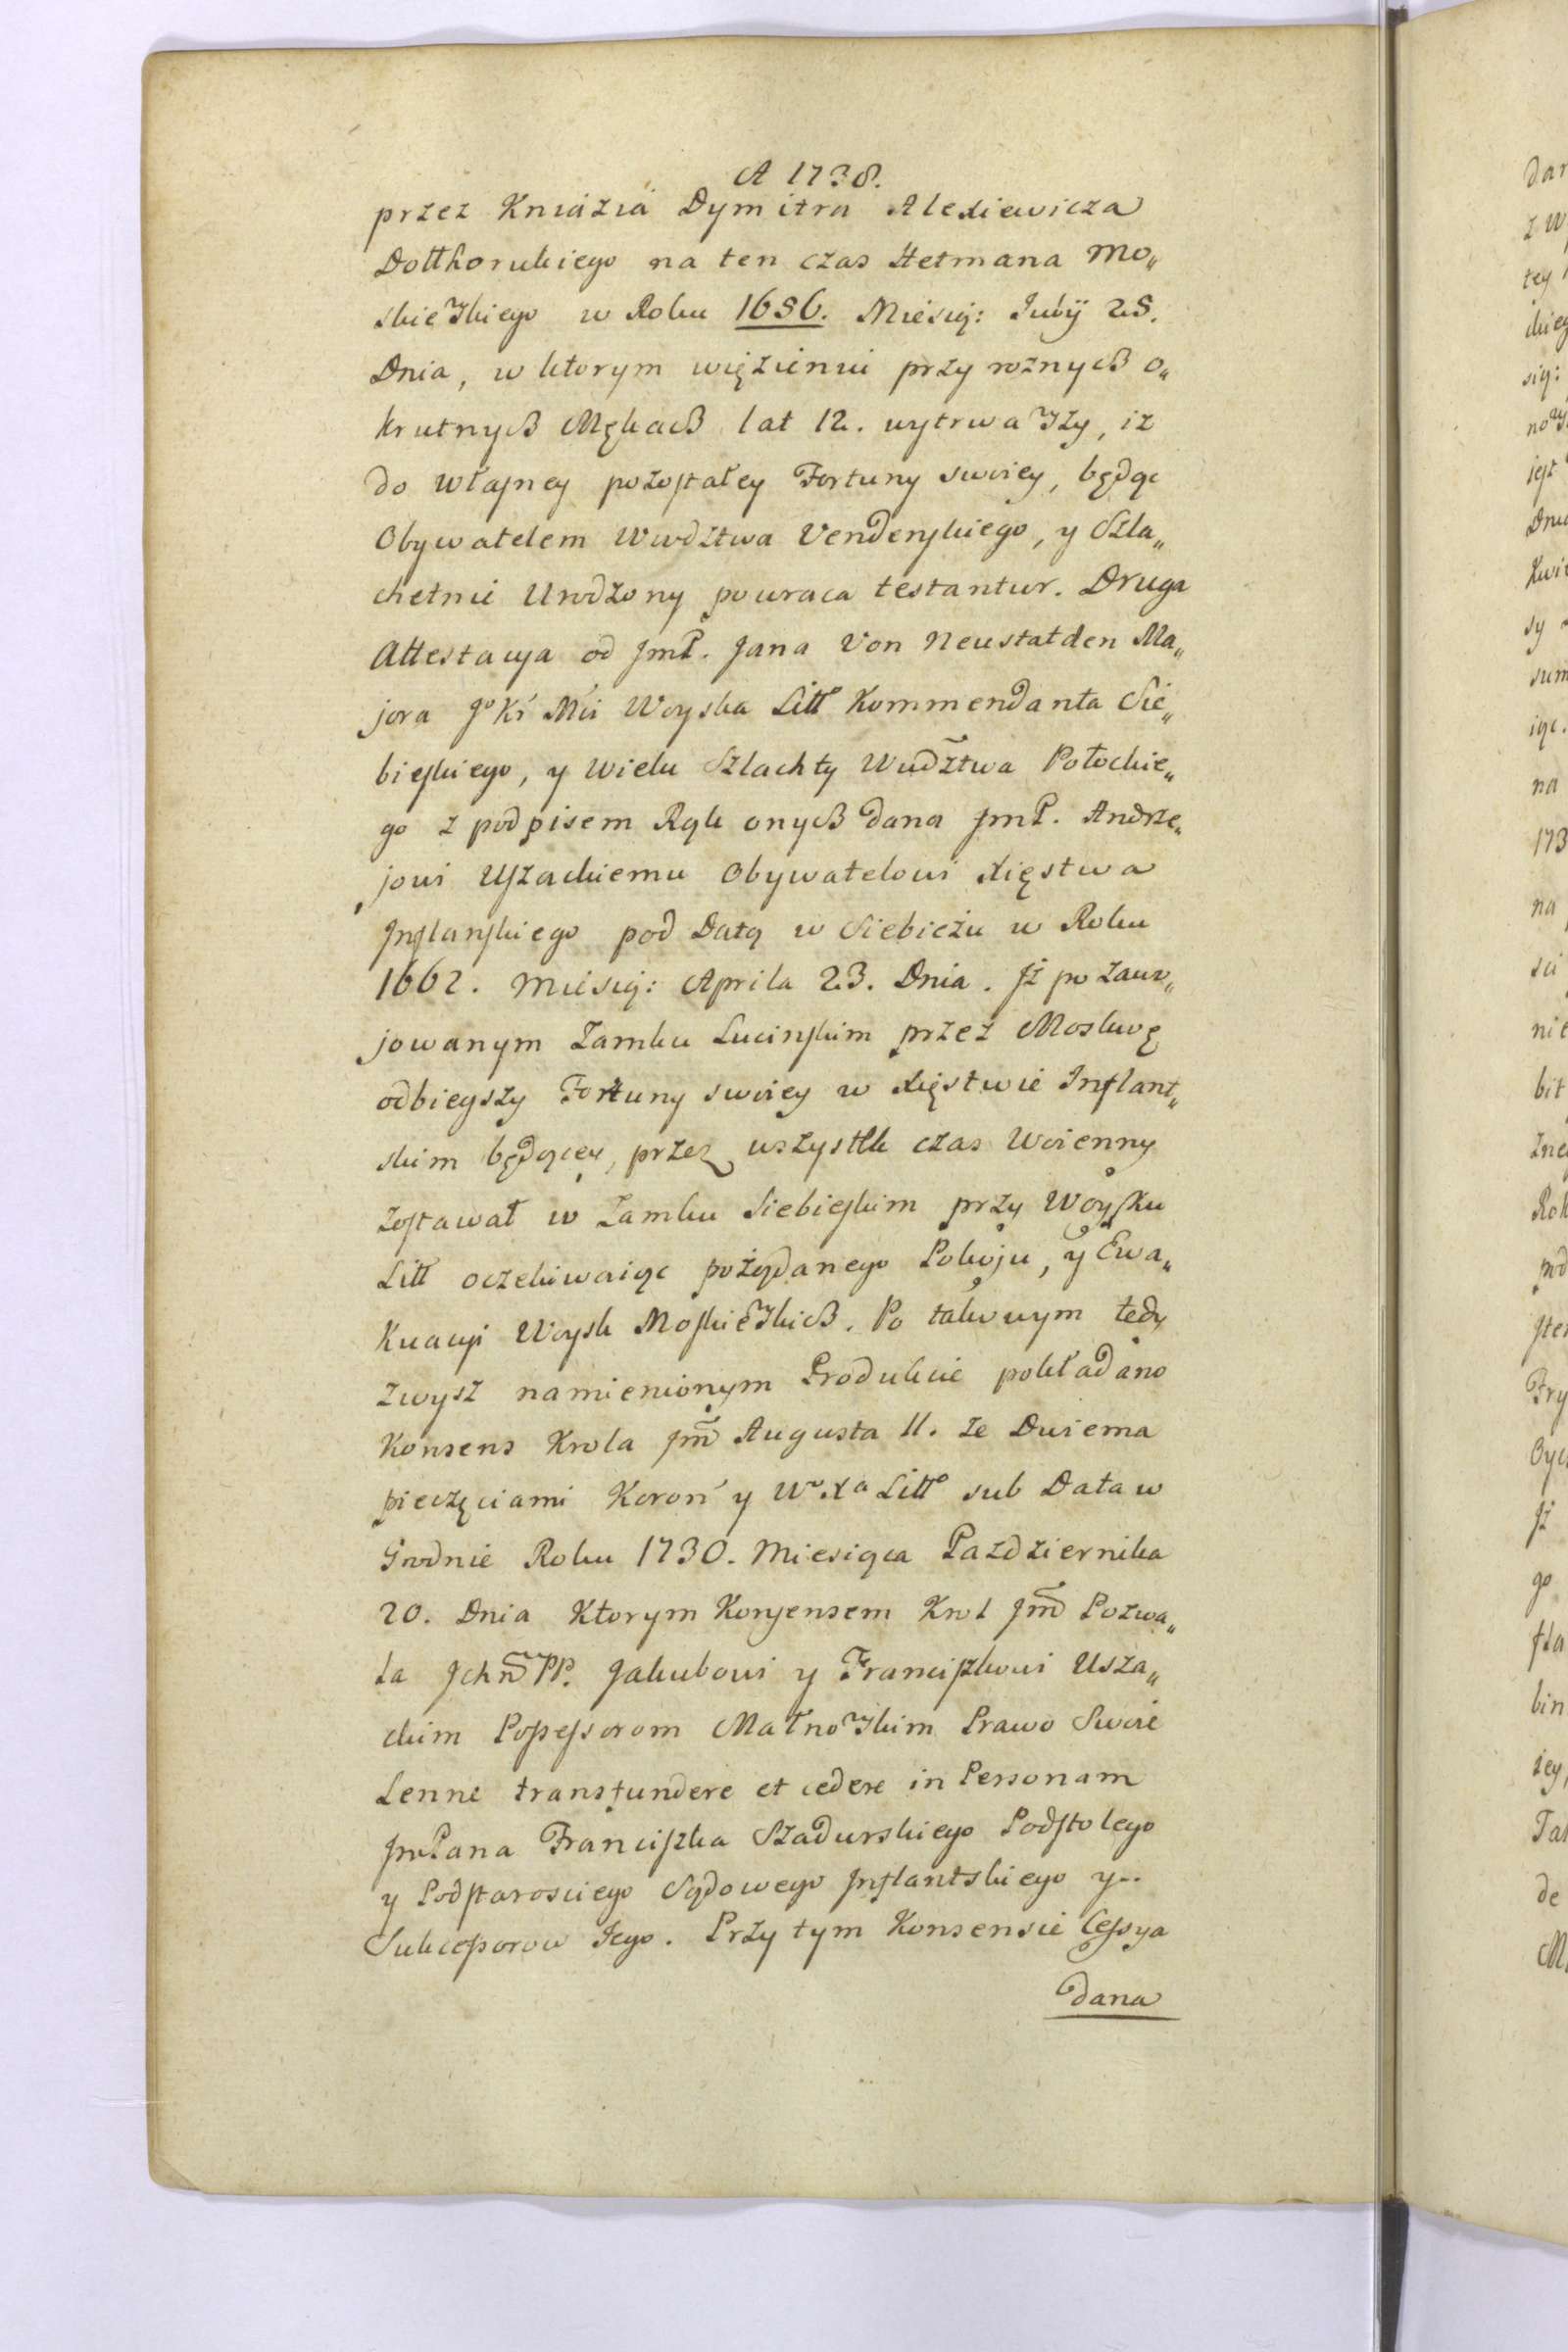 A 1738.
przez Kniazia Dymitra Alexiewicza
Dolthorukiego na ten czas Hetmana Mo„
skiewskiego w Roku 1656. Miesią: July 25.
Dnia, w ktorym więzieniu przy roznych o„
krutnych Mękach lat 12. wytrwawszy, iz
do własney pozostałey Fortuny swoiey, będąc
Obywatelem Wwdztwa Vendenskiego, y Szla„
chetnie Urodzony powraca testantur. Druga
Attestacya od JmP. Jana Von Neustatden Ma„
jora Jº Kr Mci Woyska Littº Kommendanta Sie„
bieskiego, y wielu Szlachty Wwdztwa Połockie„
go z podpisem Rąk onych dana JmP. Andrze„
jowi Uszackiemu Obywatelowi Xięstwa
Inflanskiego pod Datą w Siebieżu w Roku
1662. Miesią: Aprila 23. Dnia. Jż po zawo„
jowanym Zamku Lucinskim przez Moskwę
odbiegszy Fortuny swoiey w Xięstwie Inflant„
skim będącey, przez wszystek czas Woienny
zostawał w Zamku Siebieskim przy Woysku
Litt oczekiwaiąc pożądanego Pokoju, y Ewa„
kuacyi Woysk Moskiewskich. Po takowym tedy
zwysz namienionym Produkcie pokładano
Konsens Krola Jm Augusta II. ze Dwiema
pieczęciami Koron y Wº Xa Littº sub Data w
Grodnie Roku 1730. Miesiąca Pazdziernika
20. Dnia Ktorym Konsensem Krol Jm Pozwa„
la Jchm PP. Jakubowi y Franciszkowi Usza„
ckim Possessorom Małnowskim Prawo Swoie
Lenne transfundere et cedere in Personam
JmPana Franciszka Szadurskiego Podstolego
y Podstarosciego Sądowego Inflantskiego y..
Sukcessorow Jego. Przy tym Konsensie Cessya
dana